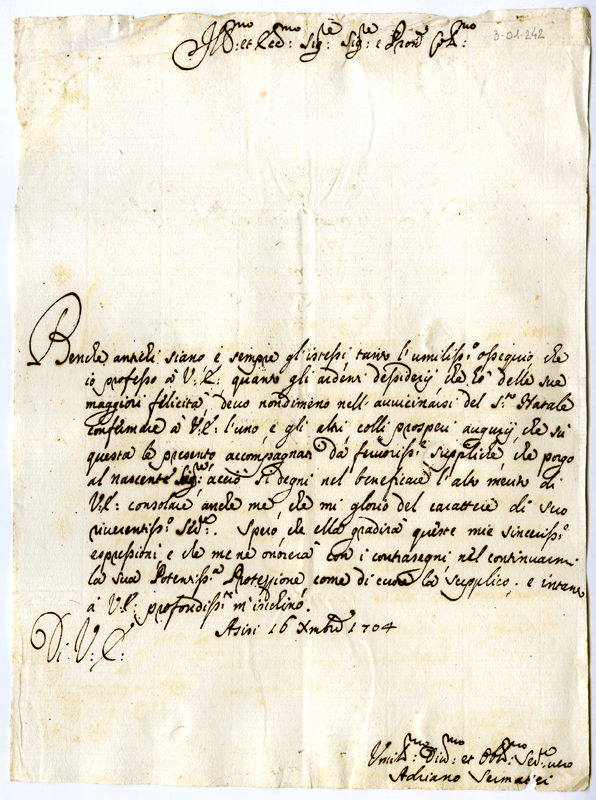 Ill.mo: et Ecc.mo: Sig.re Sig.re e Pron.e Col.mo:
3-01-242
Benche antichi siano e sempre gl'istessi tanto l'umiliss.o ossequio che
io professo à V.E: quanto gli ardenti dessiderij che hò delle sue
maggiori felicità, devo nondimeno nell'avvicinarsi del S.mo Natale
confermare à V.E: l'uno e gli altri colli prosperi augurij, che sù
questa le presento accompagnati dà fervoriss.e suppliche, che porgo
al nascente Sig.re, acciò si degni nel beneficare l'alto merito di
V.E: consolare anche me, che mi glorio del carattere di suo
riverentiss.o Ser.re. Spero che ella gradirà queste mie sinceriss.e
espressioni e che me ne onorerà con i contrasegni nel continuarmi
la sua Potentiss.a Protezzione come di cuore la supplico; e intanto
à V.E: profondiss.te m'inchino.
Asisi 16 Xmbre 1704
Di V: E:
Umil.mo: Div.mo: et Obl.mo: Ser.re vero
Adriano